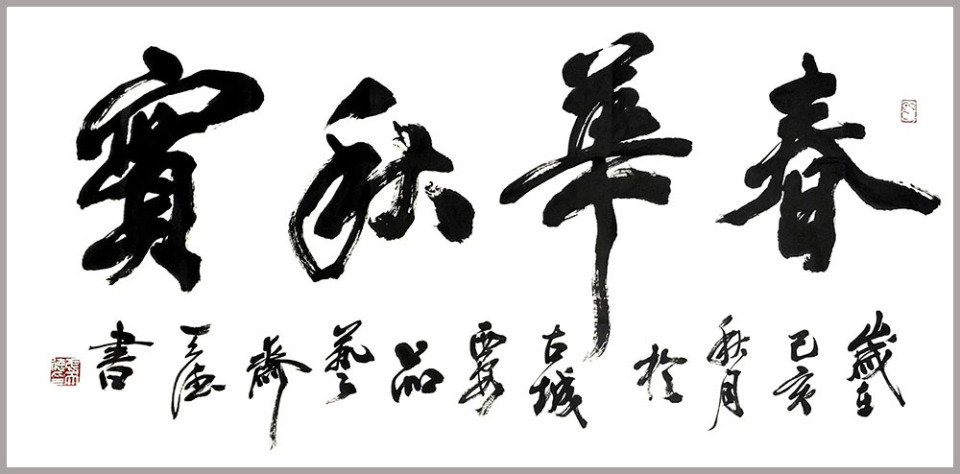 春華秋實
歲在己亥秋月於古城西安品藝齋書